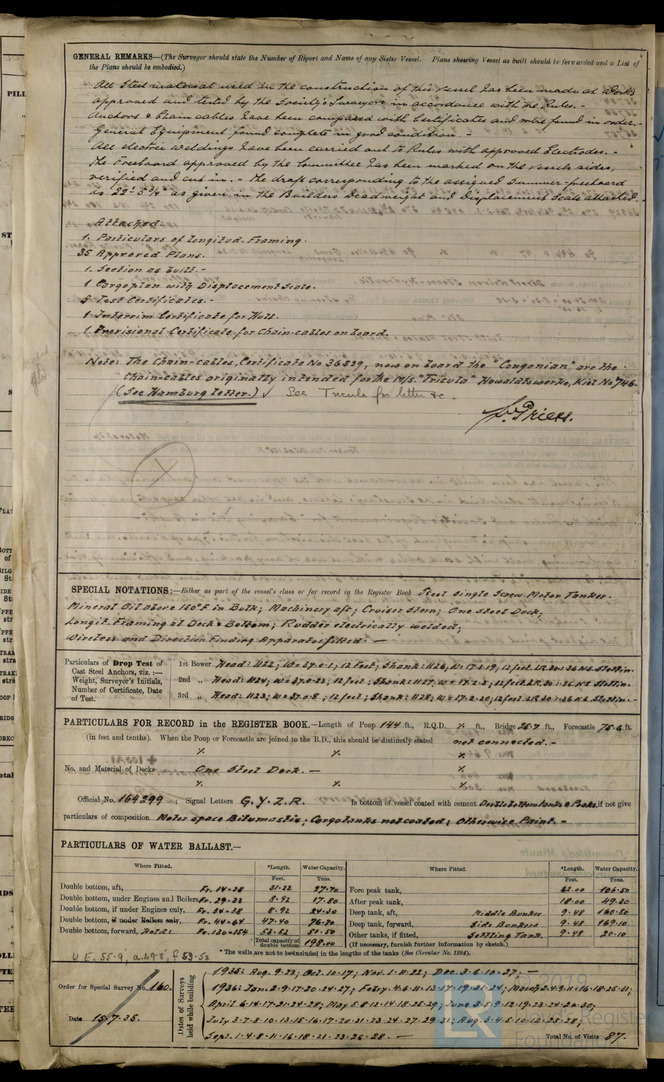 GENERAL REMARKS—(The Surveyor should state the Number of Report and Name of any Sister Vessel. Plans showing Vessel as built should be forwarded and a List of
the Plans should be embodied.)
All Steel material used in the construction of this vessel has been made at Works
approved and tested by the Society's Surveyors in accordance with the Rules.-
Anchors & Chain cables have been compared with Certificates and was found in order.
General Equipment found complete in good condition -
All electric weldings have been carried out to Rules with approved Electrodes.-
The Freeboard approved by the Committee has been marked on the vessels sides,
verified and cut in. - The draft corresponding to the assigned Summer freeboard
as given in the Builders Deadweight and Displacement Scale attached.-
Attached:
1. Particulars of Longitud. Framing.
35 Approved Plans.
1. Section as built.-
1 Cargoplan with Displacement Scale.
5 Test Certificates.-
1 Interim Certificate for Hull.
1. Provisional Certificate for Chain-cables on board.
Note: The Chain-cables, Certificate No 36529, now on board the "Congonian" are the
Chain-cables originally intended for the M/S. "Tricula" Howaldtswerke, Kiel No 746.
(See Hamburg letter.) See Tricula for letter &c.
SPECIAL NOTATIONS:—Either as part of the vessel's class or for record in the Register Book Steel single Screw Motor Tanker.
Mineral Oil above 150°F in Bulk; Machinery aft; Cruiser Stern; One Steel Deck;
Longit. Framing at Deck & Bottom; Rudder electrically welded;
Wireless and Direction Finding Apparatus fitted. —
Particulars of Drop Test of
Cast Steel Anchors, viz.:—
Weight, Surveyor's Initials,
Number of Certificate, Date
of Test.
1st Bower
2nd „
3rd „
PARTICULARS FOR RECORD in the REGISTER BOOK.—Length of Poop 144 ft., R.Q.D. ft., Bridge 35.7 ft., Forecastle 75.6 ft.
(in feet and tenths). When the Poop or Forecastle are joined to the B.D., this should be distinctly stated not connected. -
No. and Material of Decks One Steel Deck. —
Official No. 164299 ; Signal Letters G.Y.Z.R. Is bottom of vessel coated with cement Double bottom tanks & Peaks, if not give
particulars of composition Motor space Bitumastic; Cargotanks not coated; Otherwise Paint. -
PARTICULARS OF WATER BALLAST.—
Where Fitted. *Length. Water Capacity. Where Fitted. *Length. Water Capacity.
Feet. Tons. Feet. Tons.
Double bottom, aft, Fr. 14-28 31.22 27.70 Fore peak tank, 106.50
Double bottom, under Engines and Boilers Fr. 29-33 8.92 17.80 After peak tank, 18.00 49.20
Double bottom, if under Engines only, 8.92 Deep tank, aft, Middle Bunker 9.48 160.80
Double bottom, if under Boilers only, Fr. 44-64 47.40 76.70 Deep tank, forward, Side Bunkers 9.48 169.10
Double bottom, forward, Fr. 150-154 Other tanks, if fitted, Settling Tank 9.48 20.10
Total capacity of double bottom 198.00 (If necessary, furnish further information by sketch.)
* The wells are not to be included in the lengths of the tanks (See Circular No. 1284).
Order for Special Survey No. 160.
Date 15/7.35.
Dates of Surveys held while building
1935: Aug. 9.23; Oct. 10.17; Nov. 1.11.22; Dec. 3.6.10.27; —
1936: Jan. 2.9.17.20.24.27; Febry. 4.6.11.13.17.19.21.24; March 2.4.9.11.16.18.25.31;
April 6.14.17.21.24.28; May 5.8.12.14.18.25.29; June 2.5.9.12.19.23.24.26.30;
July 3.7.8.10.13.15.16.17.20.21.23.24.27.29.31; Aug. 3.4.5.10.12.25.28;
Sept. 1.4.8.11.16.18.21.23.26.28. —
Total No. of Visits 87.
© 2019
Lloyd's Register
Foundation